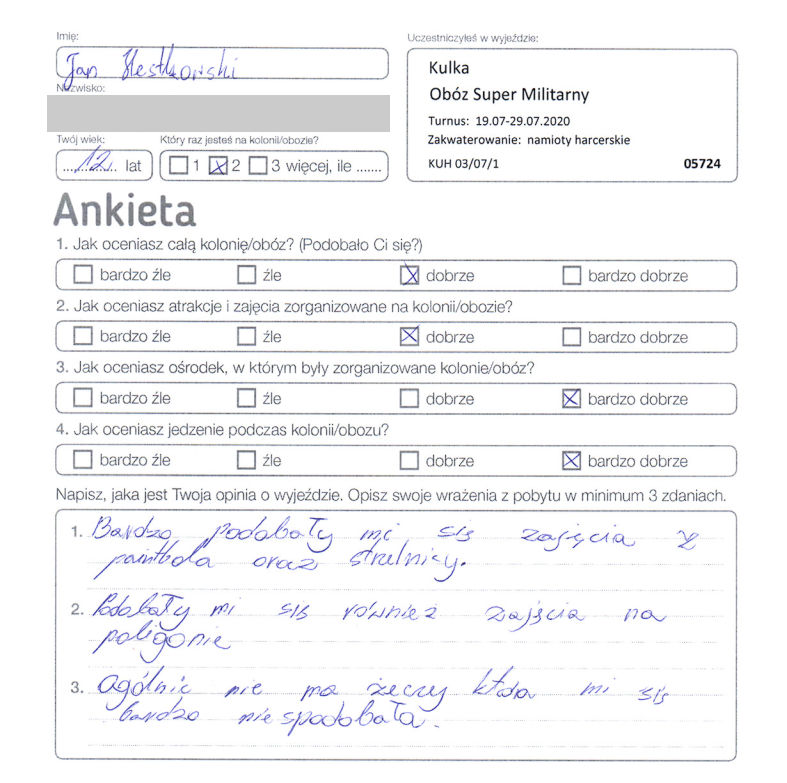 Imię:
Jan
Nazwisko:
Twój wiek:
12 lat
Który raz jesteś na kolonii/obozie?
1 2 3 więcej, ile .......
Uczestniczyłeś w wyjeździe:
Kulka
Obóz Super Militarny
Turnus: 19.07-29.07.2020
Zakwaterowanie: namioty harcerskie
KUH 03/07/1 05724
Ankieta
1. Jak oceniasz całą kolonię/obóz? (Podobało Ci się?)
bardzo źle źle dobrze bardzo dobrze
2. Jak oceniasz atrakcje i zajęcia zorganizowane na kolonii/obozie?
bardzo źle źle dobrze bardzo dobrze
3. Jak oceniasz ośrodek, w którym były zorganizowane kolonie/obóz?
bardzo źle źle dobrze bardzo dobrze
4. Jak oceniasz jedzenie podczas kolonii/obozu?
bardzo źle źle dobrze bardzo dobrze
Napisz, jaka jest Twoja opinia o wyjeździe. Opisz swoje wrażenia z pobytu w minimum 3 zdaniach.
1. Bardzo podobały mi się zajęcia z
paintbola oraz strzelnicy.
2. Podobały mi się również zajęcia na
poligonie
3. Ogólnie nie ma żeczy która mi się
bardzo niespodobała.